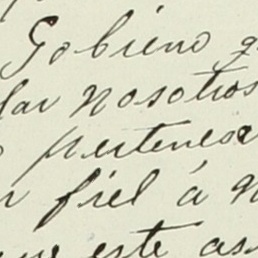 Gobierno
dar nosotros
pertenes
fiel á
este as